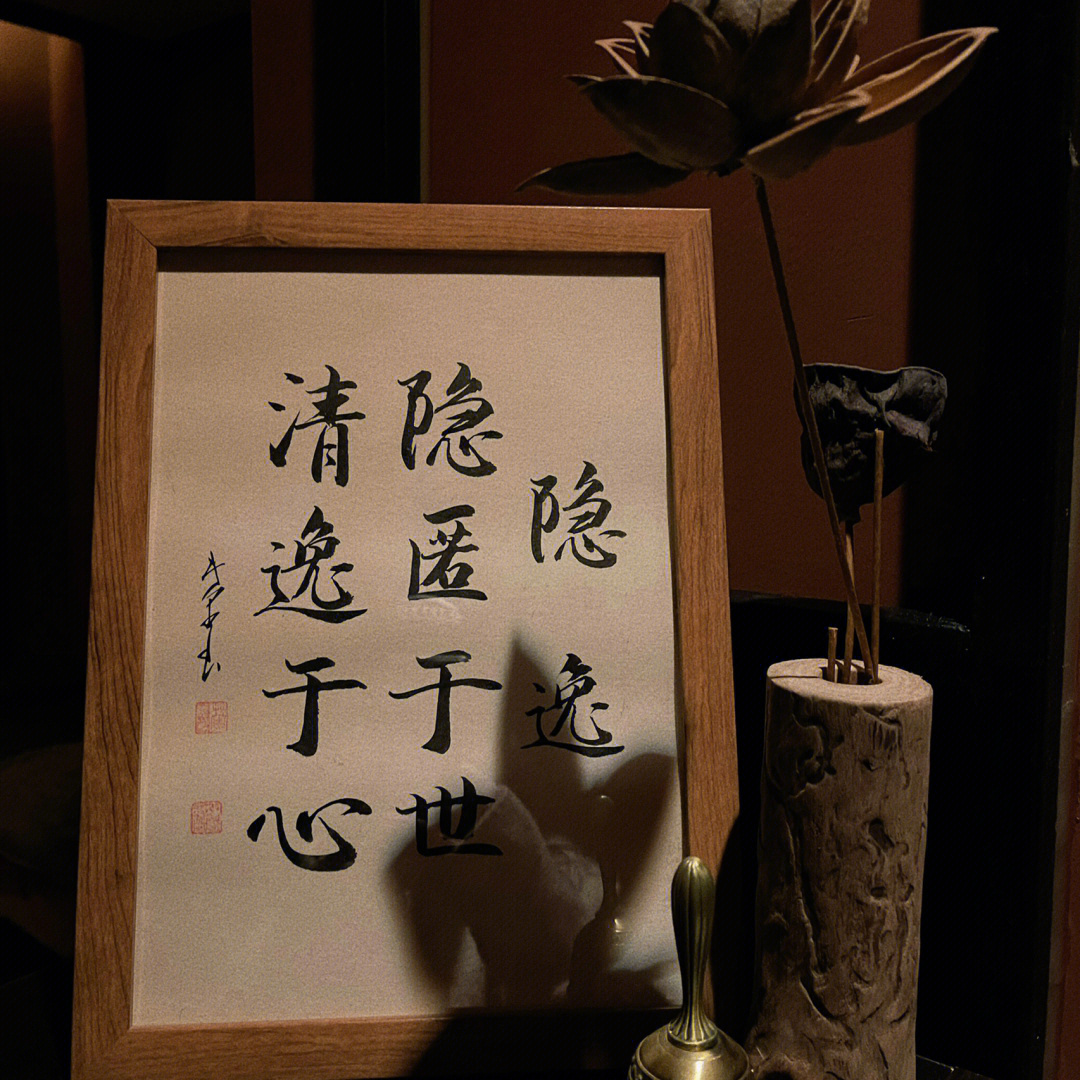 隐逸
隐匿于世
清逸于心